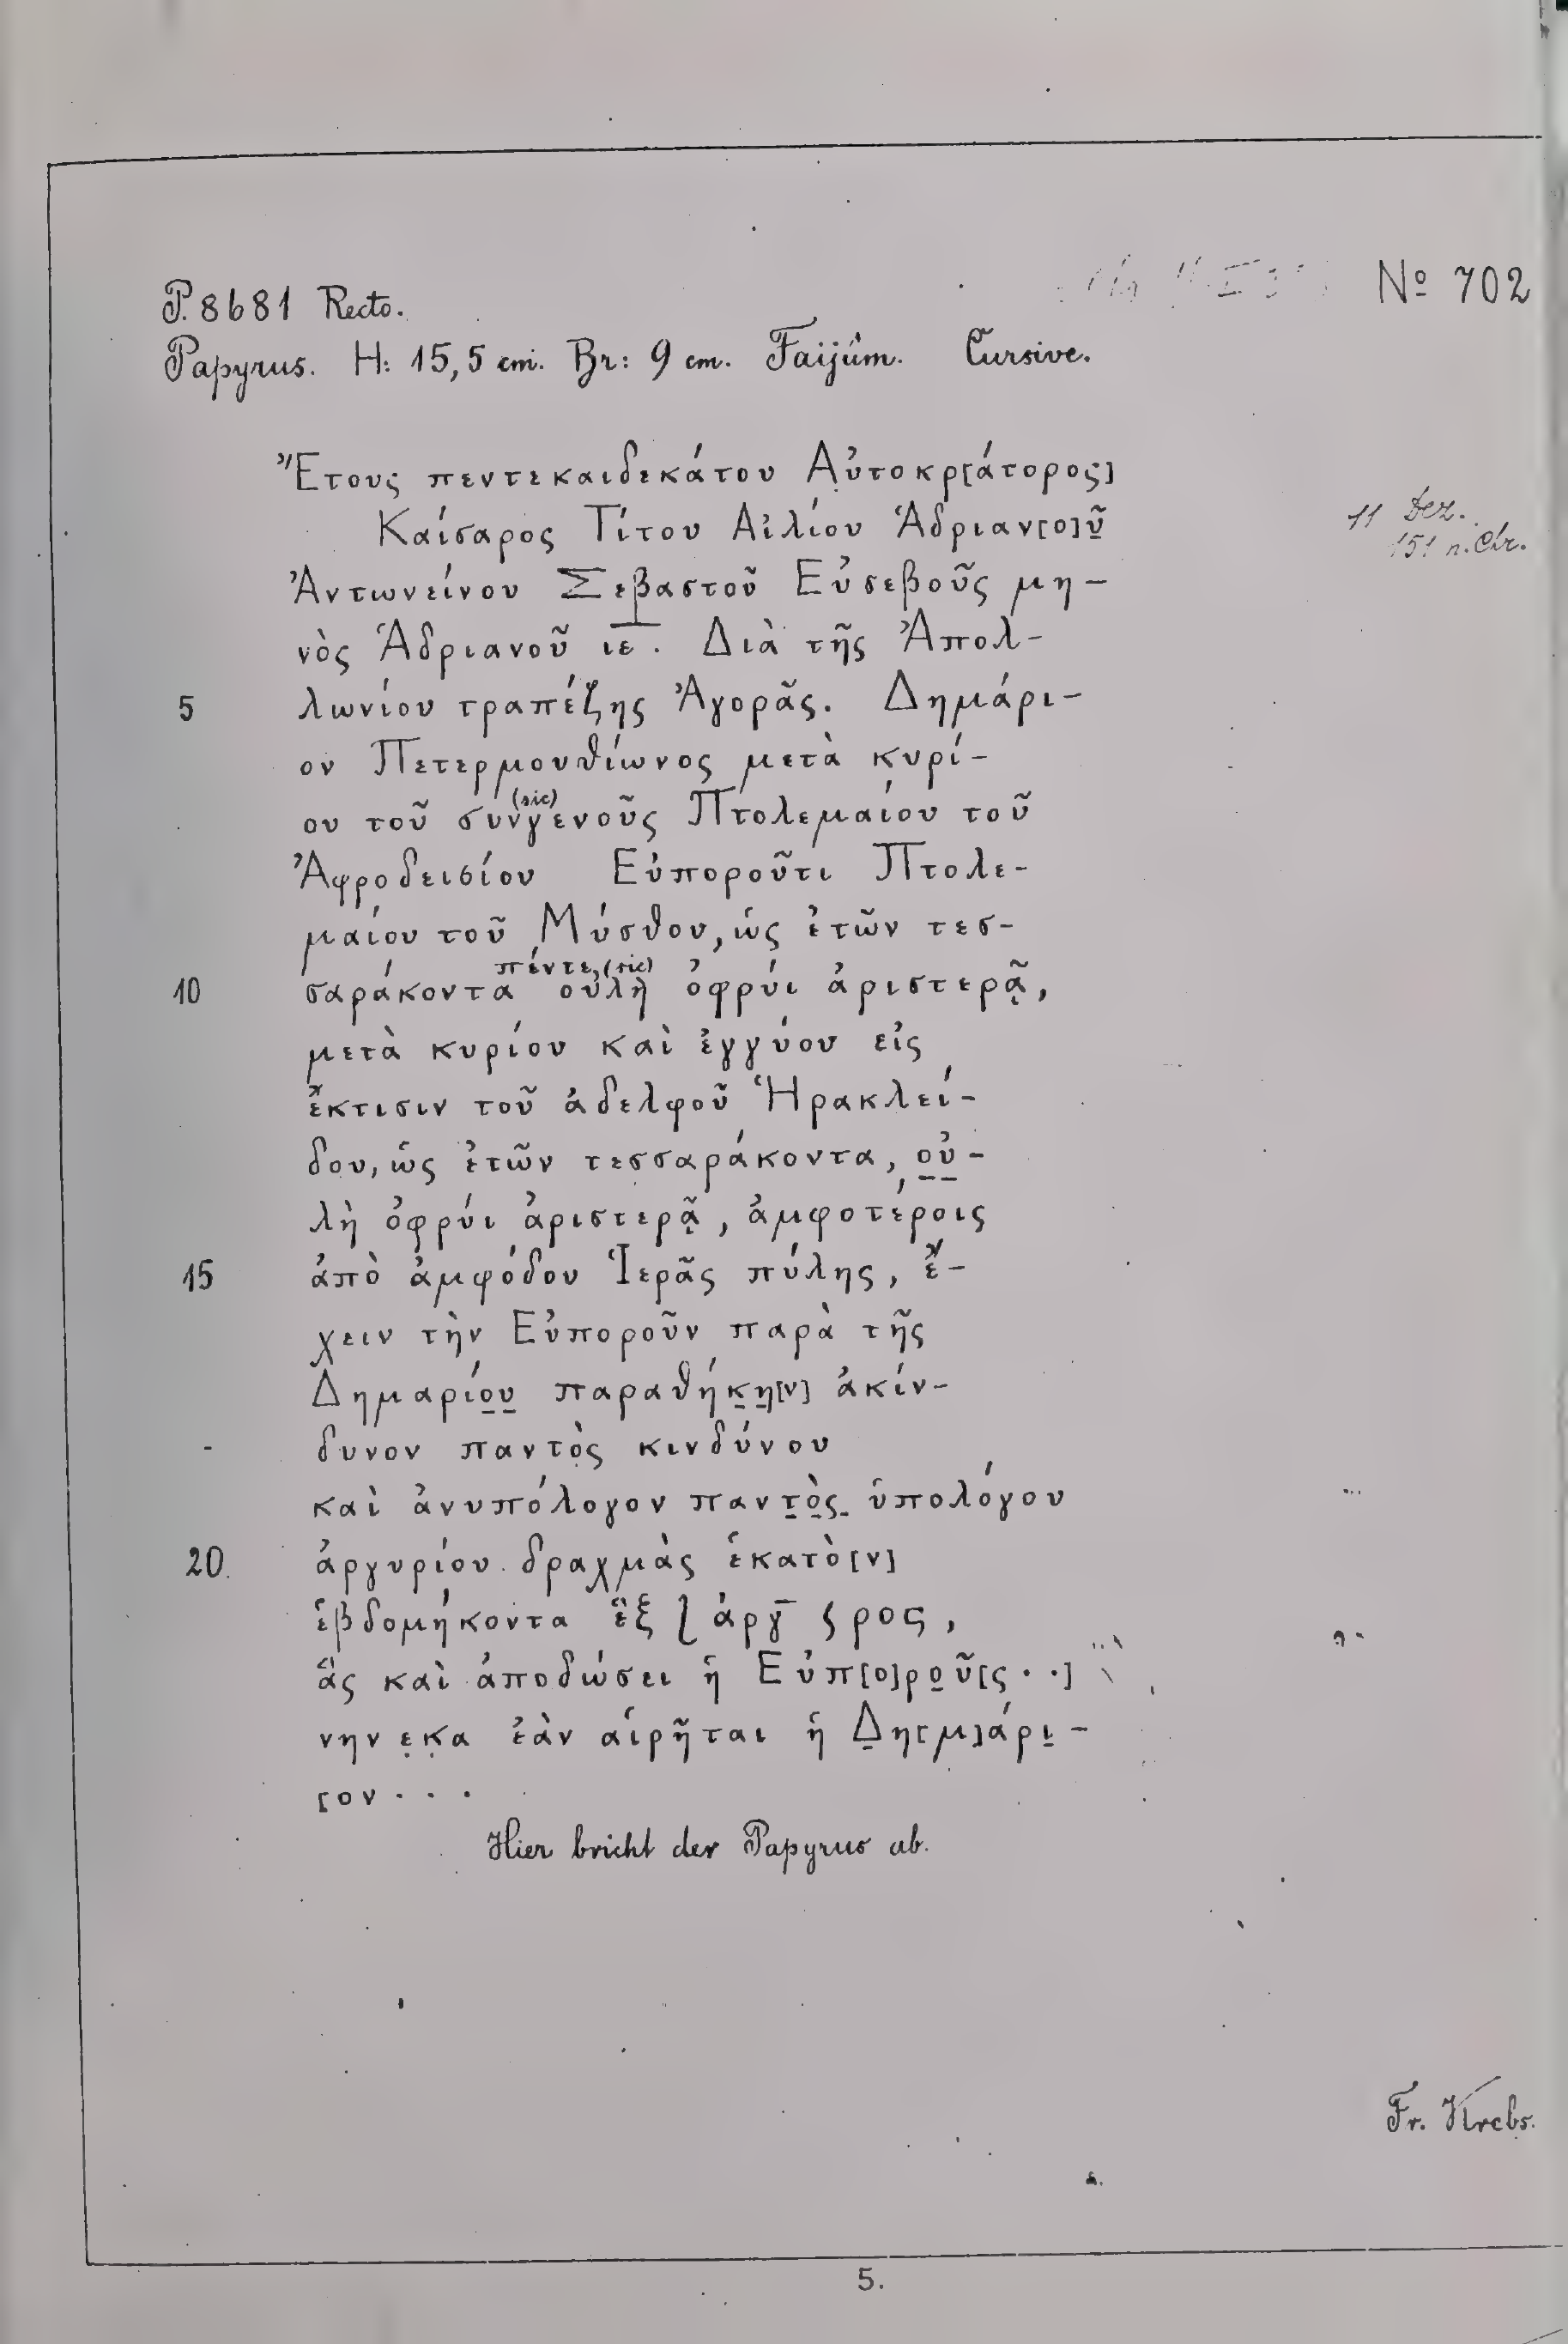 Nº 702
P. 8681 Recto.
Papyrus. H: 15,5 cm. Br: 9 cm. Faijûm. Cursive.
Ἔτους πεντεκαιδεκάτου Αὐτοκρ[άτορος]
Καίσαρος Τίτου Αἰλίου Ἁδριαν[ο]ῦ̣
11 Dez.
151 n. Chr.
Ἀντωνείνου Σεβαστοῦ Εὐσεβοῦς μη-
νὸς Ἁδριανοῦ ιε̅. Διὰ τῆς Ἀπολ-
5 λωνίου τραπέζης Ἀγορᾶς. Δημάρι-
ον Πετερμουθίωνος μετὰ κυρί-
(sic)
ου τοῦ συνγενοῦς Πτολεμαίου τοῦ
Ἀφροδεισίου Εὐποροῦτι Πτολε-
μαίου τοῦ Μύσθου, ὡς ἐτῶν τεσ-
πέντε, (sic)
10 σαράκοντα οὐλὴ ὀφρύι ἀριστερᾷ,
μετὰ κυρίου καὶ ἐγγύου εἰς
ἔκτισιν τοῦ ἀδελφοῦ Ἡρακλεί-
δου, ὡς ἐτῶν τεσσαράκοντα, ο̣ὐ̣-
λὴ ὀφρύι ἀριστερᾷ, ἀμφοτέροις
15 ἀπὸ ἀμφόδου Ἱερᾶς πύλης, ἔ-
χειν τὴν Εὐποροῦν παρὰ τῆς
Δημαρίο̣υ̣ παραθήκ̣η̣[ν] ἀκίν-
δυνον παντὸς κινδύνου
καὶ ἀνυπόλογον παντ̣ὸ̣ς̣ ὑπολόγου
20. ἀργυρίου δραχμὰς ἑκατὸ[ν]
ἑβδομήκοντα ἓξ ⌠ ἀργ̅ ς ρος,
ἃς καὶ ἀποδώσει ἡ Εὐπ[ο]ρο̣ῦ[ς · ·]
νην ε̣κ̣α ἐὰν αἱρῆται ἡ Δ̣η[μ]άρι̣-
[ον · · ·
Hier bricht der Papyrus ab.
Fr. Krebs.
5.